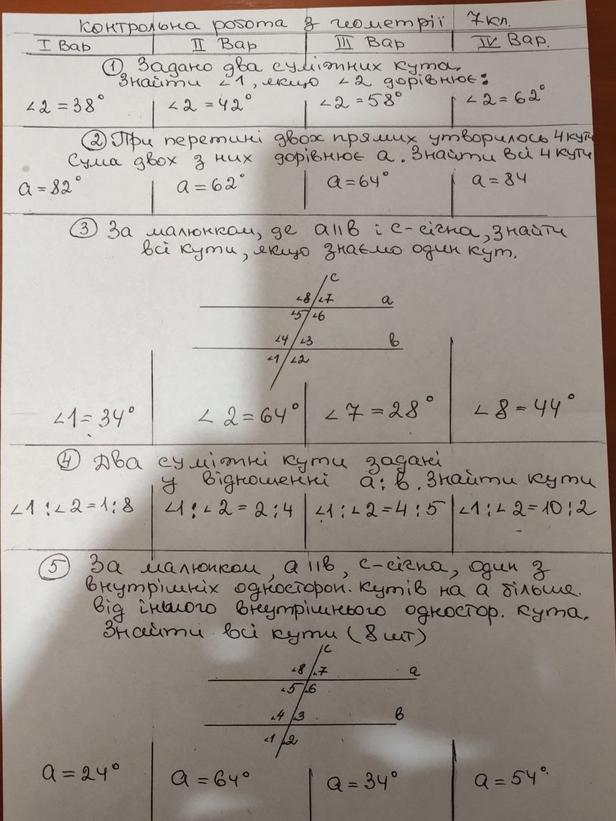 Контрольна робота з геометрії 7кл.
I Вар II Вар III Вар IV Вар.
① Задано два суміжних кута.
Знайти ∠1, якщо ∠2 дорівнює:
∠2=38° ∠2=42° ∠2=58° ∠2=62°
② При перетині двох прямих утворилось 4 кути
Сума двох з них дорівнює a. Знайти всі 4 кути
a=82° a=62° a=64° a=84
③ За малюнком, де a||в і с-січна, знайти
всі кути, якщо знаємо один кут.
c
∠8 ∠7 a
∠5 ∠6
∠4 ∠3 в
∠1 ∠2
∠1=34° ∠2=64° ∠7=28° ∠8=44°
④ Два суміжні кути задані
у відношенні a:в. Знайти кути
∠1:∠2=1:8 ∠1:∠2=2:4 ∠1:∠2=4:5 ∠1:∠2=10:2
⑤ За малюнком, a||в, с-січна, один з
внутрішніх односторон. кутів на a більше
від іншого внутрішнього одностор. кута.
Знайти всі кути (8 шт)
c
∠8 ∠7 a
∠5 ∠6
∠4 ∠3 в
∠1 ∠2
a=24° a=64° a=34° a=54°